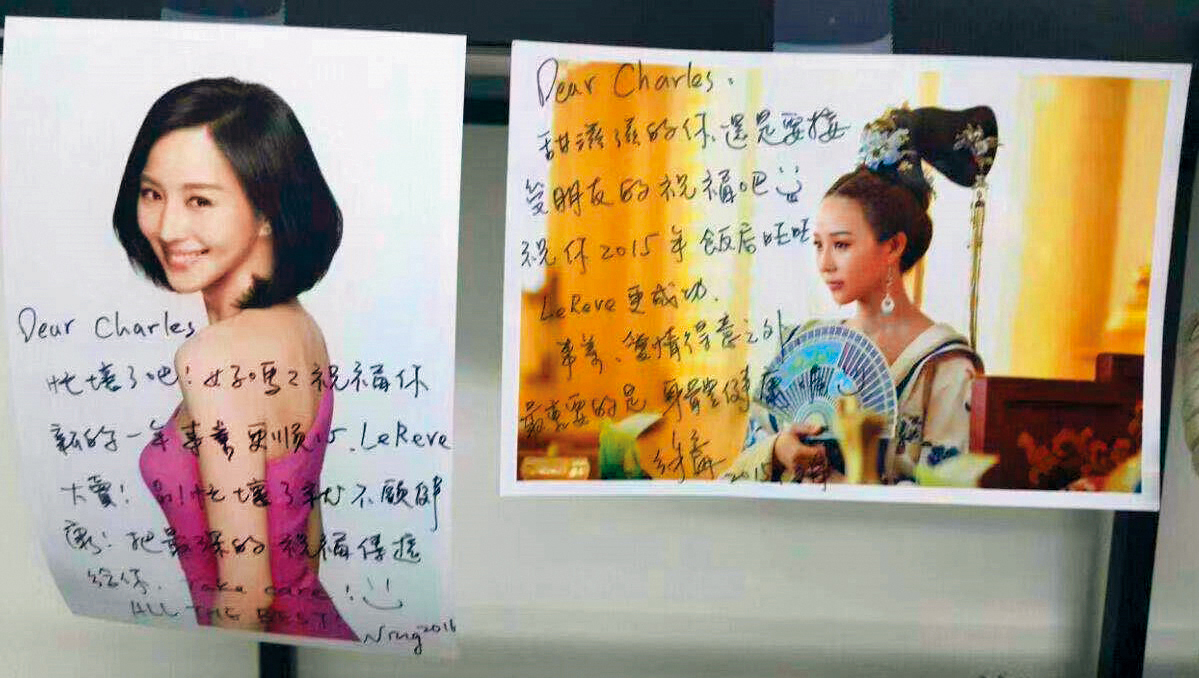 Dear Charles
忙壞了吧!好嗎?祝福你
新的一年事業更順心.LeReve
大賣!別忙壞了就不顧健
康!把最深的祝福傳遞
給你. Take care!
ALL THE BEST!
Ning 2016
Dear Charles.
甜滋滋的你還是要接
受朋友的祝福吧
祝你2015年飯店旺旺
LeReve更成功.
事業、愛情得意之外
最重要的是身體健康
2015